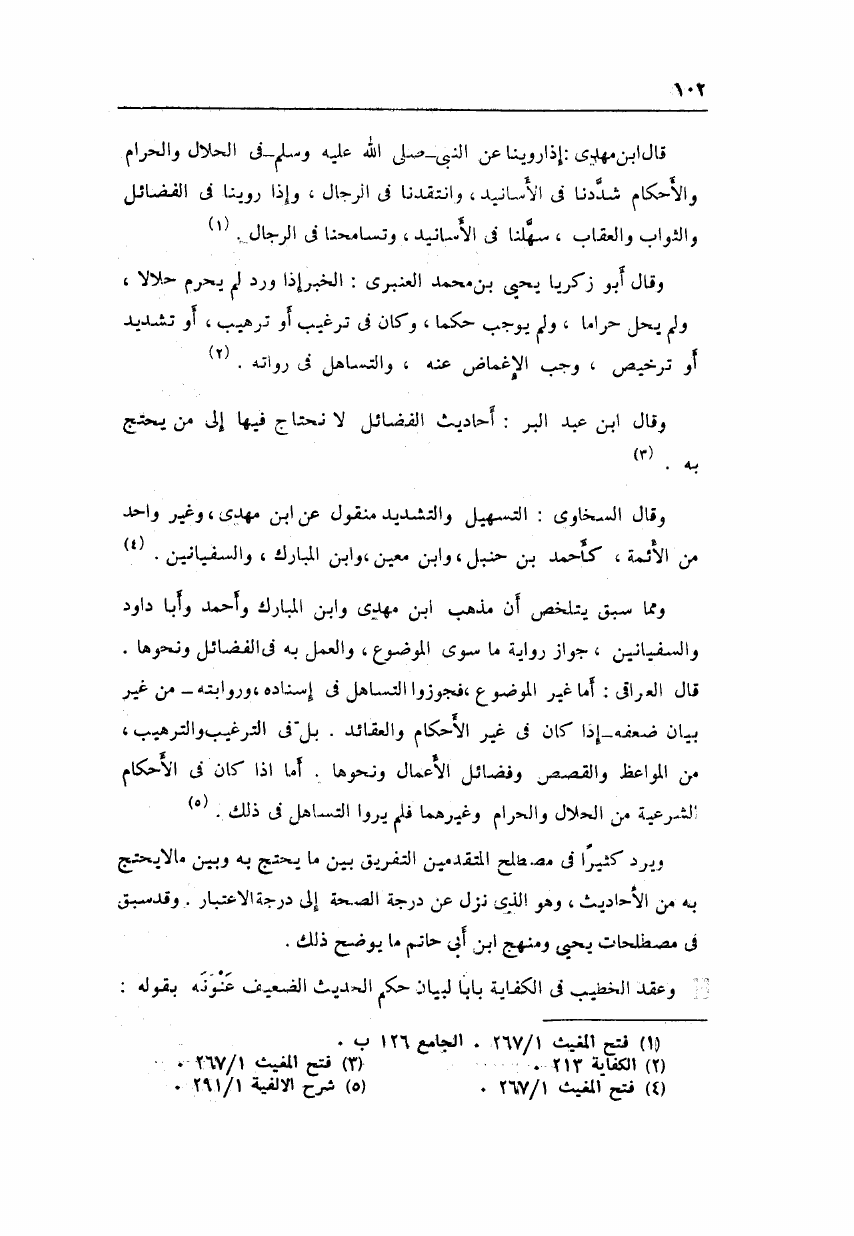 ١٠٢
قال ابن مهدى : إذا روينا عن النبي ــ صلى الله عليه وسلم ــ فى الحلال والحرام
والأحكام شدَّدنا فى الأسانيد ، وانتقدنا فى الرجال ، وإذا روينا فى الفضائل
والثواب والعقاب ، سهَّلنا فى الأسانيد ، وتسامحنا فى الرجال . (١)
وقال أبو زكريا يحيى بن محمد العنبرى : الخبر إذا ورد لم يحرم حلالا ،
ولم يحل حراما ، ولم يوجب حكما ، وكان فى ترغيب أو ترهيب ، أو تشديد
أو ترخيص ، وجب الإغماض عنه ، والتساهل فى رواته . (٢)
وقال ابن عبد البر : أحاديث الفضائل لا نحتاج فيها إلى من يحتج
به . (٣)
وقال السخاوى : التسهيل والتشديد منقول عن ابن مهدى ، وغير واحد
من الأئمة ، كأحمد بن حنبل ، وابن معين ، وابن المبارك ، والسفيانين . (٤)
ومما سبق يتلخص أن مذهب ابن مهدى وابن المبارك وأحمد وأبا داود
والسفيانين ، جواز رواية ما سوى الموضوع ، والعمل به فى الفضائل ونحوها .
قال العراقى : أما غير الموضوع ، فجوزوا التساهل فى إسناده ، وروايته ــ من غير
بيان ضعفه ــ إذا كان فى غير الأحكام والعقائد . بل فى الترغيب والترهيب ،
من المواعظ والقصص وفضائل الأعمال ونحوها . أما اذا كان فى الأحكام
الشرعية من الحلال والحرام وغيرهما فلم يروا التساهل فى ذلك . (٥)
ويرد كثيرًا فى مصطلح المتقدمين التفريق بين ما يحتج به وبين مالايحتج
به من الأحاديث ، وهو الذى نزل عن درجة الصحة إلى درجة الاعتبار . وقد سبق
فى مصطلحات يحيى ومنهج ابن أبى حاتم ما يوضح ذلك .
وعقد الخطيب فى الكفاية بابا لبيان حكم الحديث الضعيف عَنْوَنَه بقوله :
(١) فتح المغيث ٢٦٧/١ . الجامع ١٢٦ ب .
(٢) الكفاية ٢١٣ . (٣) فتح المغيث ٢٦٧/١ .
(٤) فتح المغيث ٢٦٧/١ . (٥) شرح الالفية ٢٩١/١ .